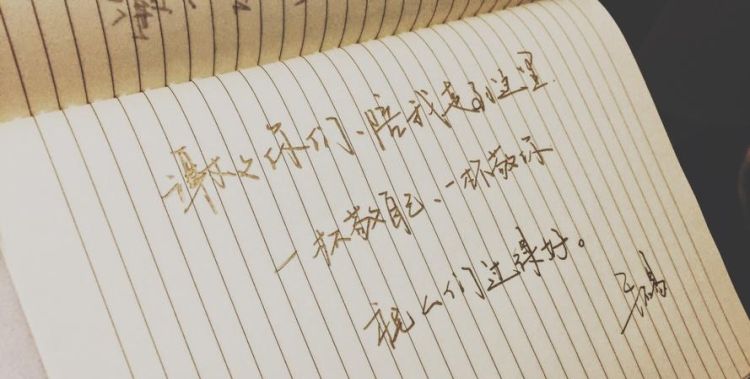 谢谢你们、陪我走到这里.
一杯敬自己、一杯敬你
祝们过得好。